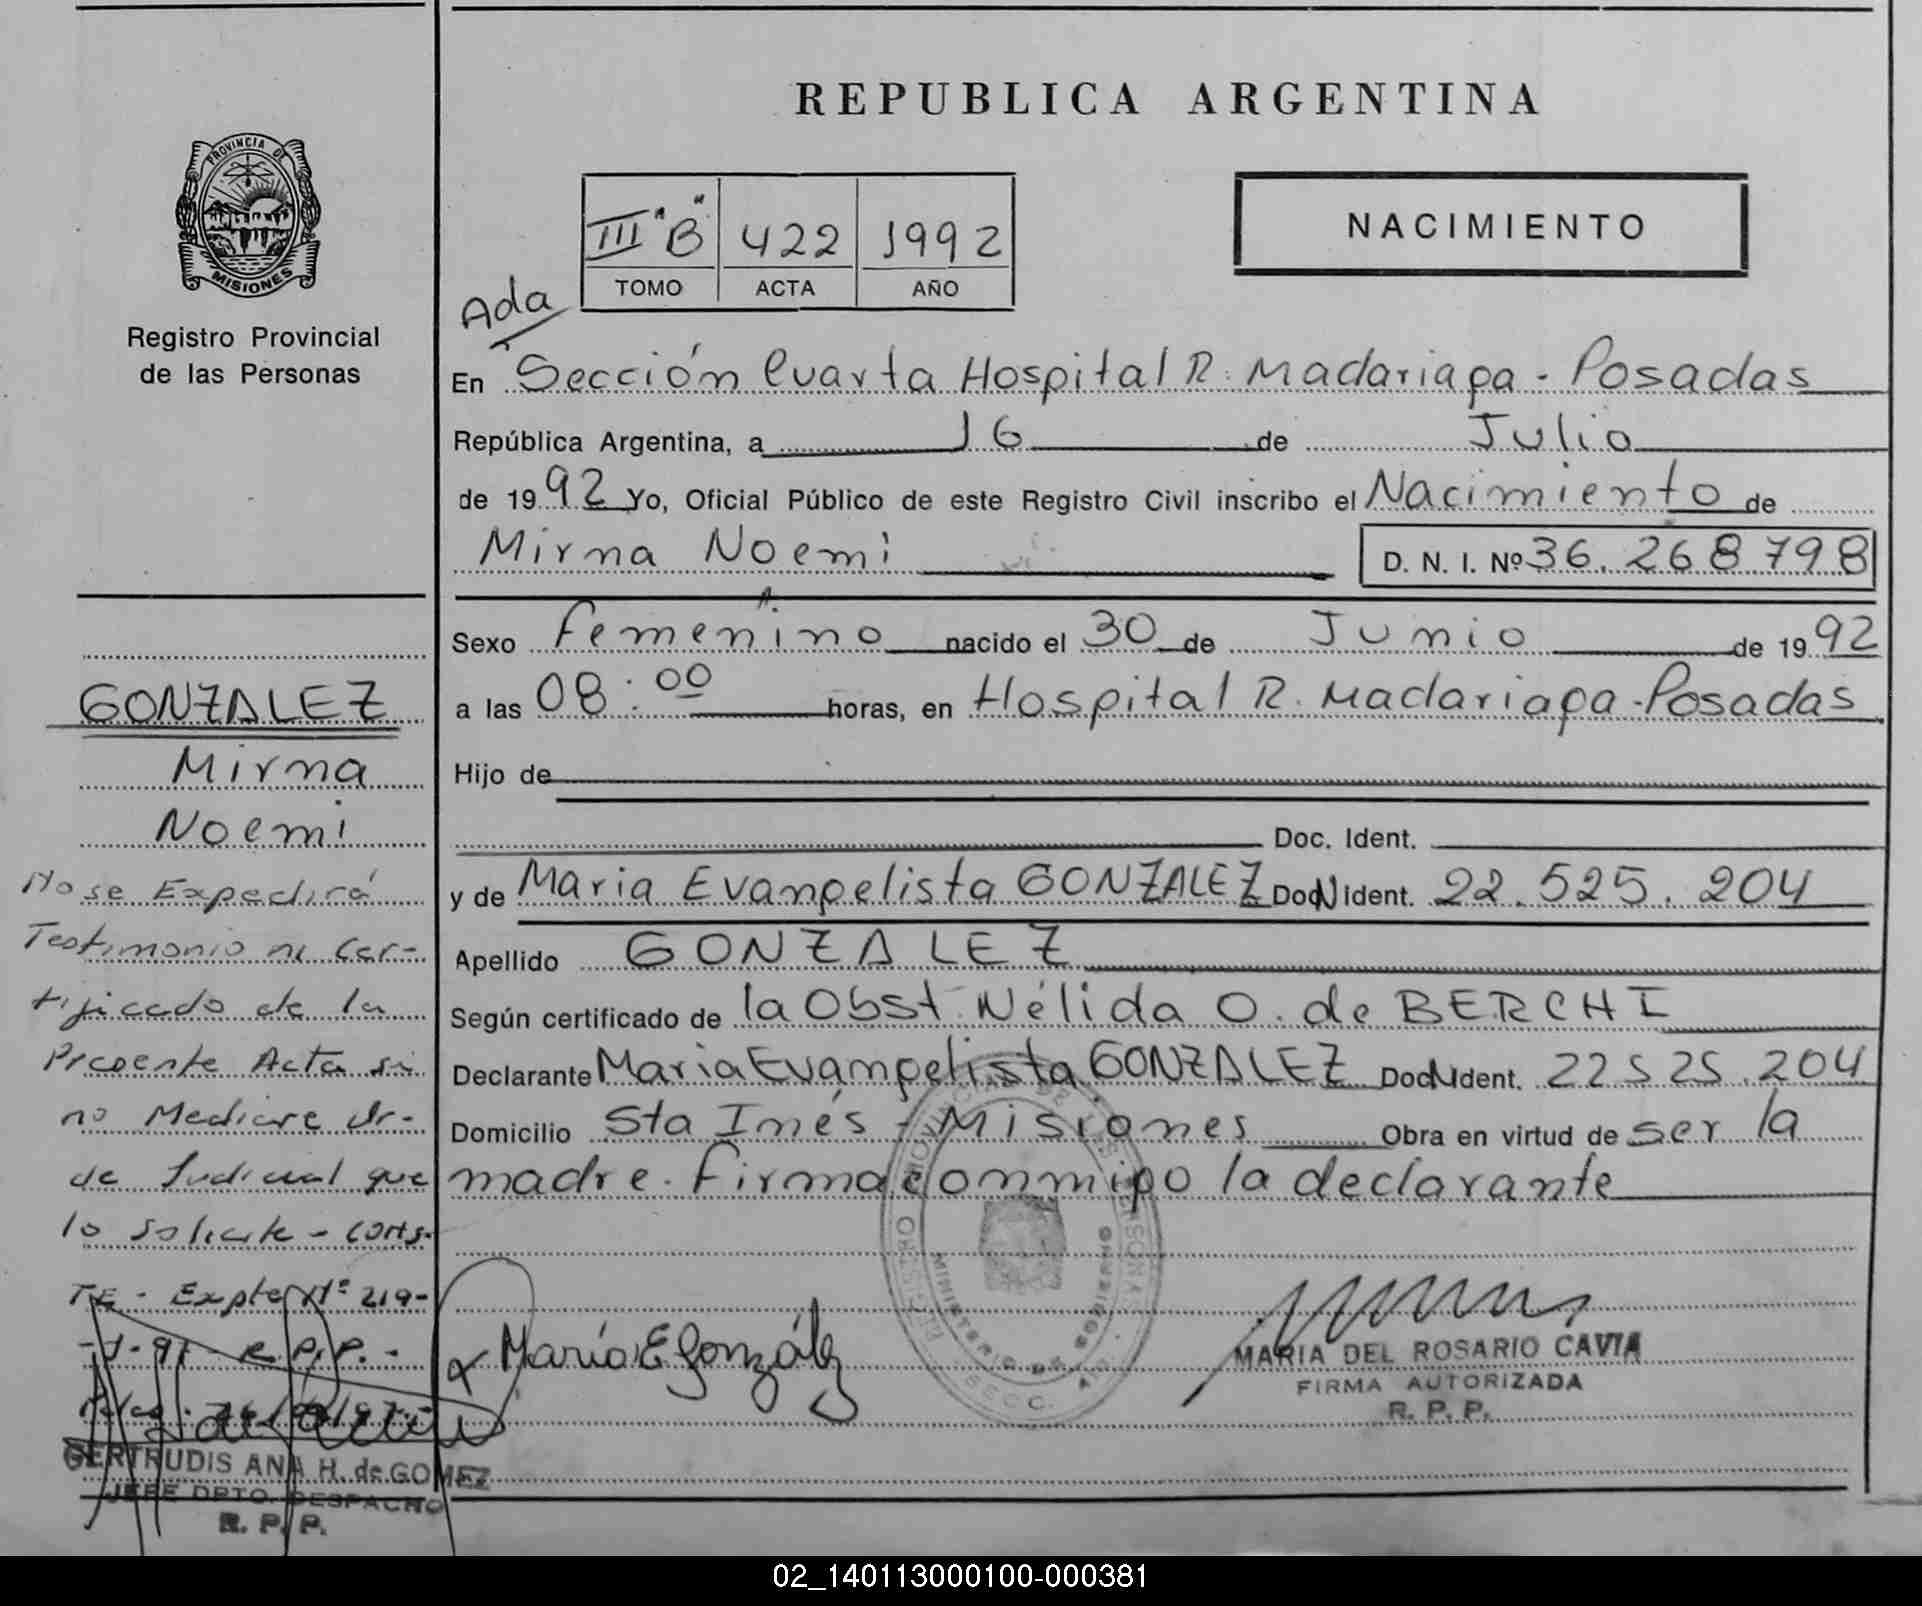 REPUBLICA ARGENTINA
PROVINCIA DE
MISIONES
Registro Provincial
de las Personas
III "B" 422 1992
TOMO ACTA AÑO
NACIMIENTO
Ada
En Sección Cuarta Hospital R. Madariaga - Posadas
República Argentina, a 16 de Julio
de 1992 Yo, Oficial Público de este Registro Civil inscribo el Nacimiento de
Mirna Noemi D. N. I. Nº 36.268798
Sexo Femenino nacido el 30 de Junio de 1992
a las 08:00 horas, en Hospital R. Madariaga - Posadas
Hijo de
Doc. Ident.
y de Maria Evangelista GONZALEZ Doc. Ident. 22.525.204
Apellido GONZALEZ
Según certificado de la Obst. Nélida O. de BERCHI
Declarante Maria Evangelista GONZALEZ Doc. Ident. 22525.204
Domicilio Sta Inés - Misiones Obra en virtud de ser la
madre. Firma conmigo la declarante
GONZALEZ
Mirna
Noemi
No se Expedirá
Testimonio ni Cer-
tificado de la
Presente Acta si
no Mediare Or-
de Judicial que
lo solicite - Corts.
TE - Expte Nº 219-
R.P.P. -
GERTRUDIS ANA H. de GOMEZ
JEFE DPTO. DESPACHO
R. P. P.
María E González
MINISTERIO DE
MARIA DEL ROSARIO CAVIA
FIRMA AUTORIZADA
R. P. P.
02_140113000100-000381